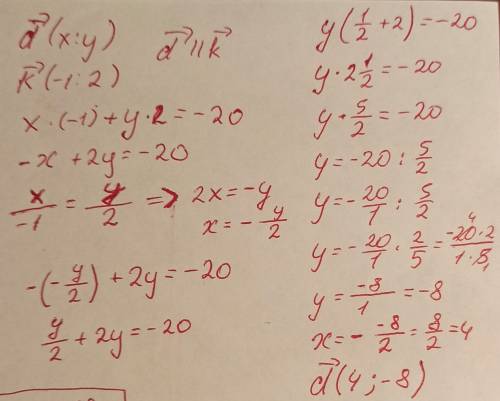 d⃗ (x:y) d⃗ || k⃗
k⃗ (-1:2)
x·(-1)+y·2=-20
-x+2y=-20
x/-1 = y/2 => 2x=-y
x=-y/2
-(-y/2)+2y=-20
y/2+2y=-20
y(1/2+2)=-20
y·2 1/2=-20
y·5/2=-20
y=-20:5/2
y=-20/1:5/2
y=-20/1·2/5=-20·2/1·5
4
1
y=-8/1=-8
x=- -8/2=8/2=4
d⃗ (4;-8)